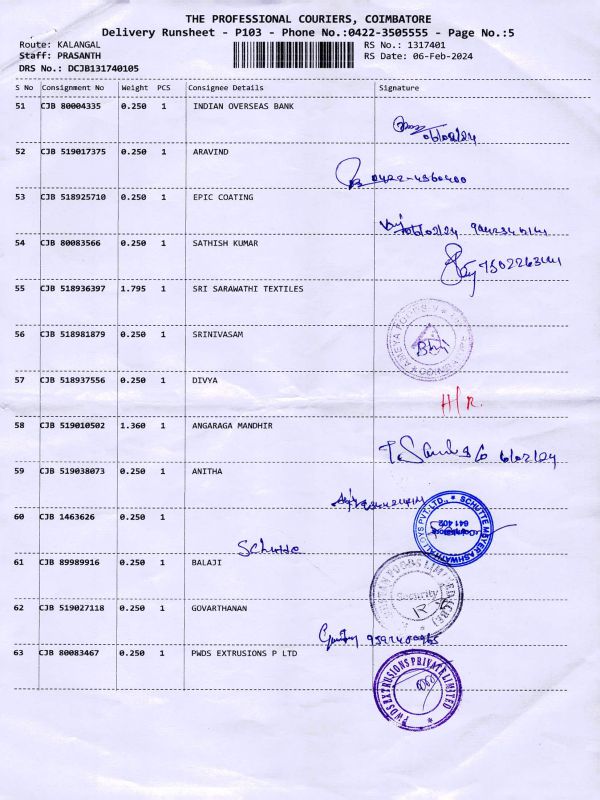 THE PROFESSIONAL COURIERS, COIMBATORE
Delivery Runsheet - P103 - Phone No.:0422-3505555 - Page No.:5
Route: KALANGAL
RS No.: 1317401
Staff: PRASANTH
RS Date: 06-Feb-2024
DRS No.: DCJB131740105
S No Consignment No Weight PCS Consignee Details Signature
51 CJB 80004335 0.250 1 INDIAN OVERSEAS BANK
06/02/24
52 CJB 519017375 0.250 1 ARAVIND
0422-4360400
53 CJB 518925710 0.250 1 EPIC COATING
06/02/24
54 CJB 80083566 0.250 1 SATHISH KUMAR
55 CJB 518936397 1.795 1 SRI SARAWATHI TEXTILES
56 CJB 518981879 0.250 1 SRINIVASAM
57 CJB 518937556 0.250 1 DIVYA
H/R.
58 CJB 519010502 1.360 1 ANGARAGA MANDHIR
6/02/24
59 CJB 519038073 0.250 1 ANITHA
60 CJB 1463626 0.250 1
SCHUTTE MEYER ASHWATH ALLOYS PVT. LTD.,
641 402
Schutte
61 CJB 89989916 0.250 1 BALAJI
Security
62 CJB 519027118 0.250 1 GOVARTHANAN
63 CJB 80083467 0.250 1 PWDS EXTRUSIONS P LTD
PWDS EXTRUSIONS PRIVATE LIMITED